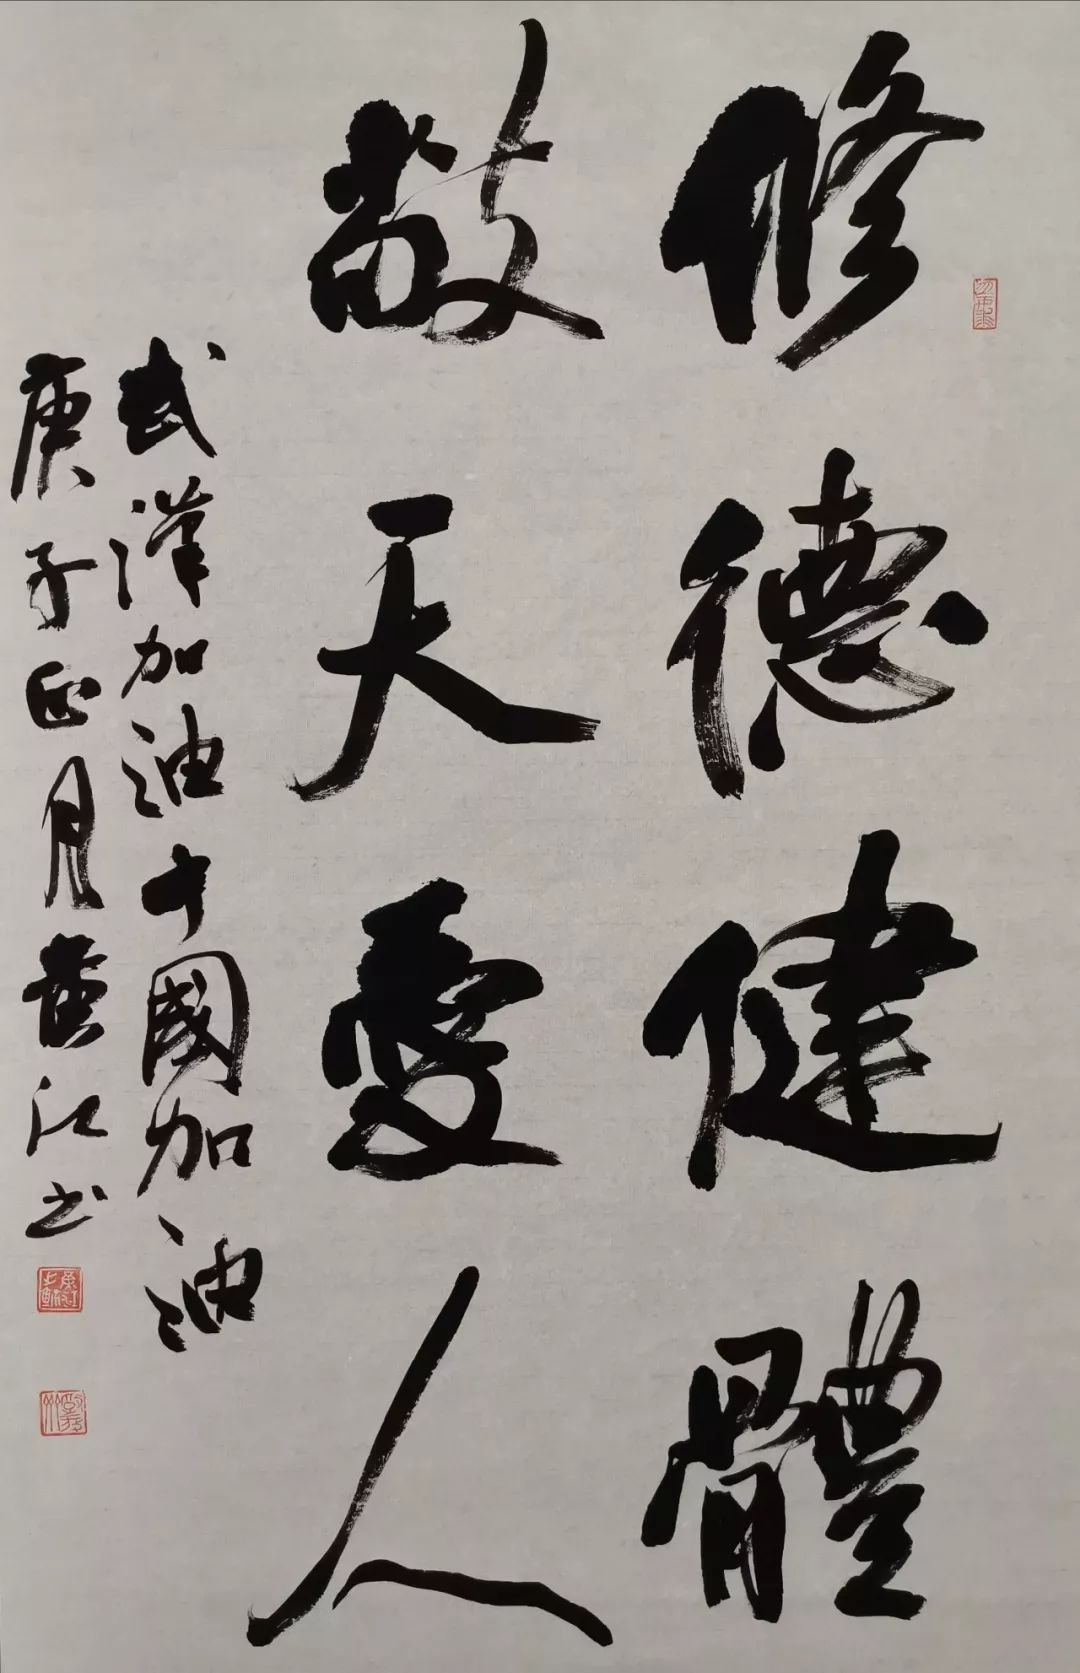 修德健體
敬天愛人
武漢加油中國加油
庚子正月黄江书